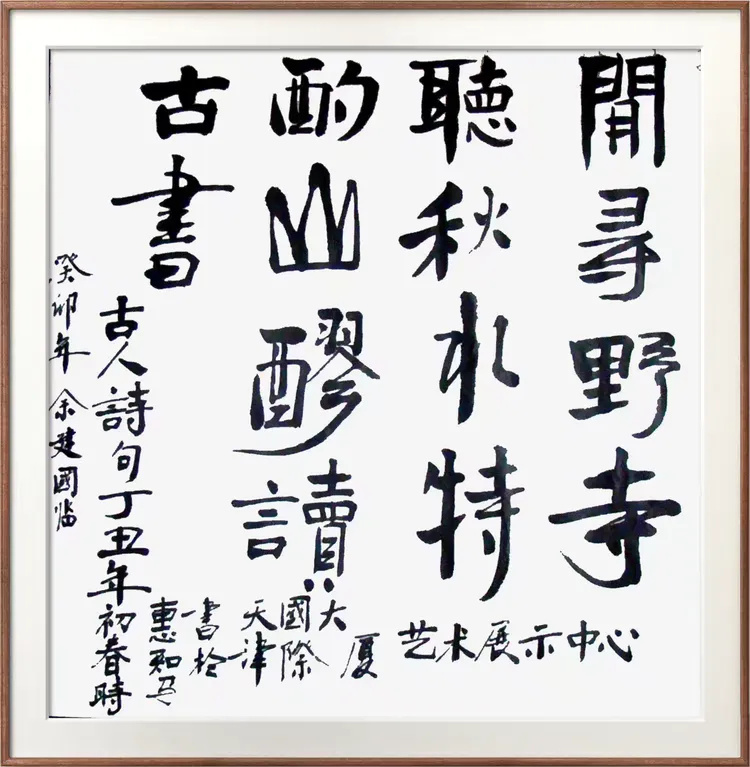 閒尋野寺
聽秋水特
酌山醪讀
古書
古人詩句丁丑年初春時
書於
天津
國際
大厦
艺术展示中心
癸卯年 余建國临